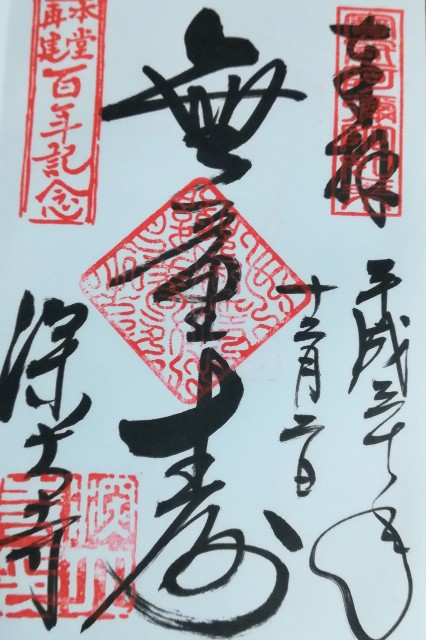 奉拝
平成三十年
十二月二日
無量寿
本堂
再建
百年記念
深大寺